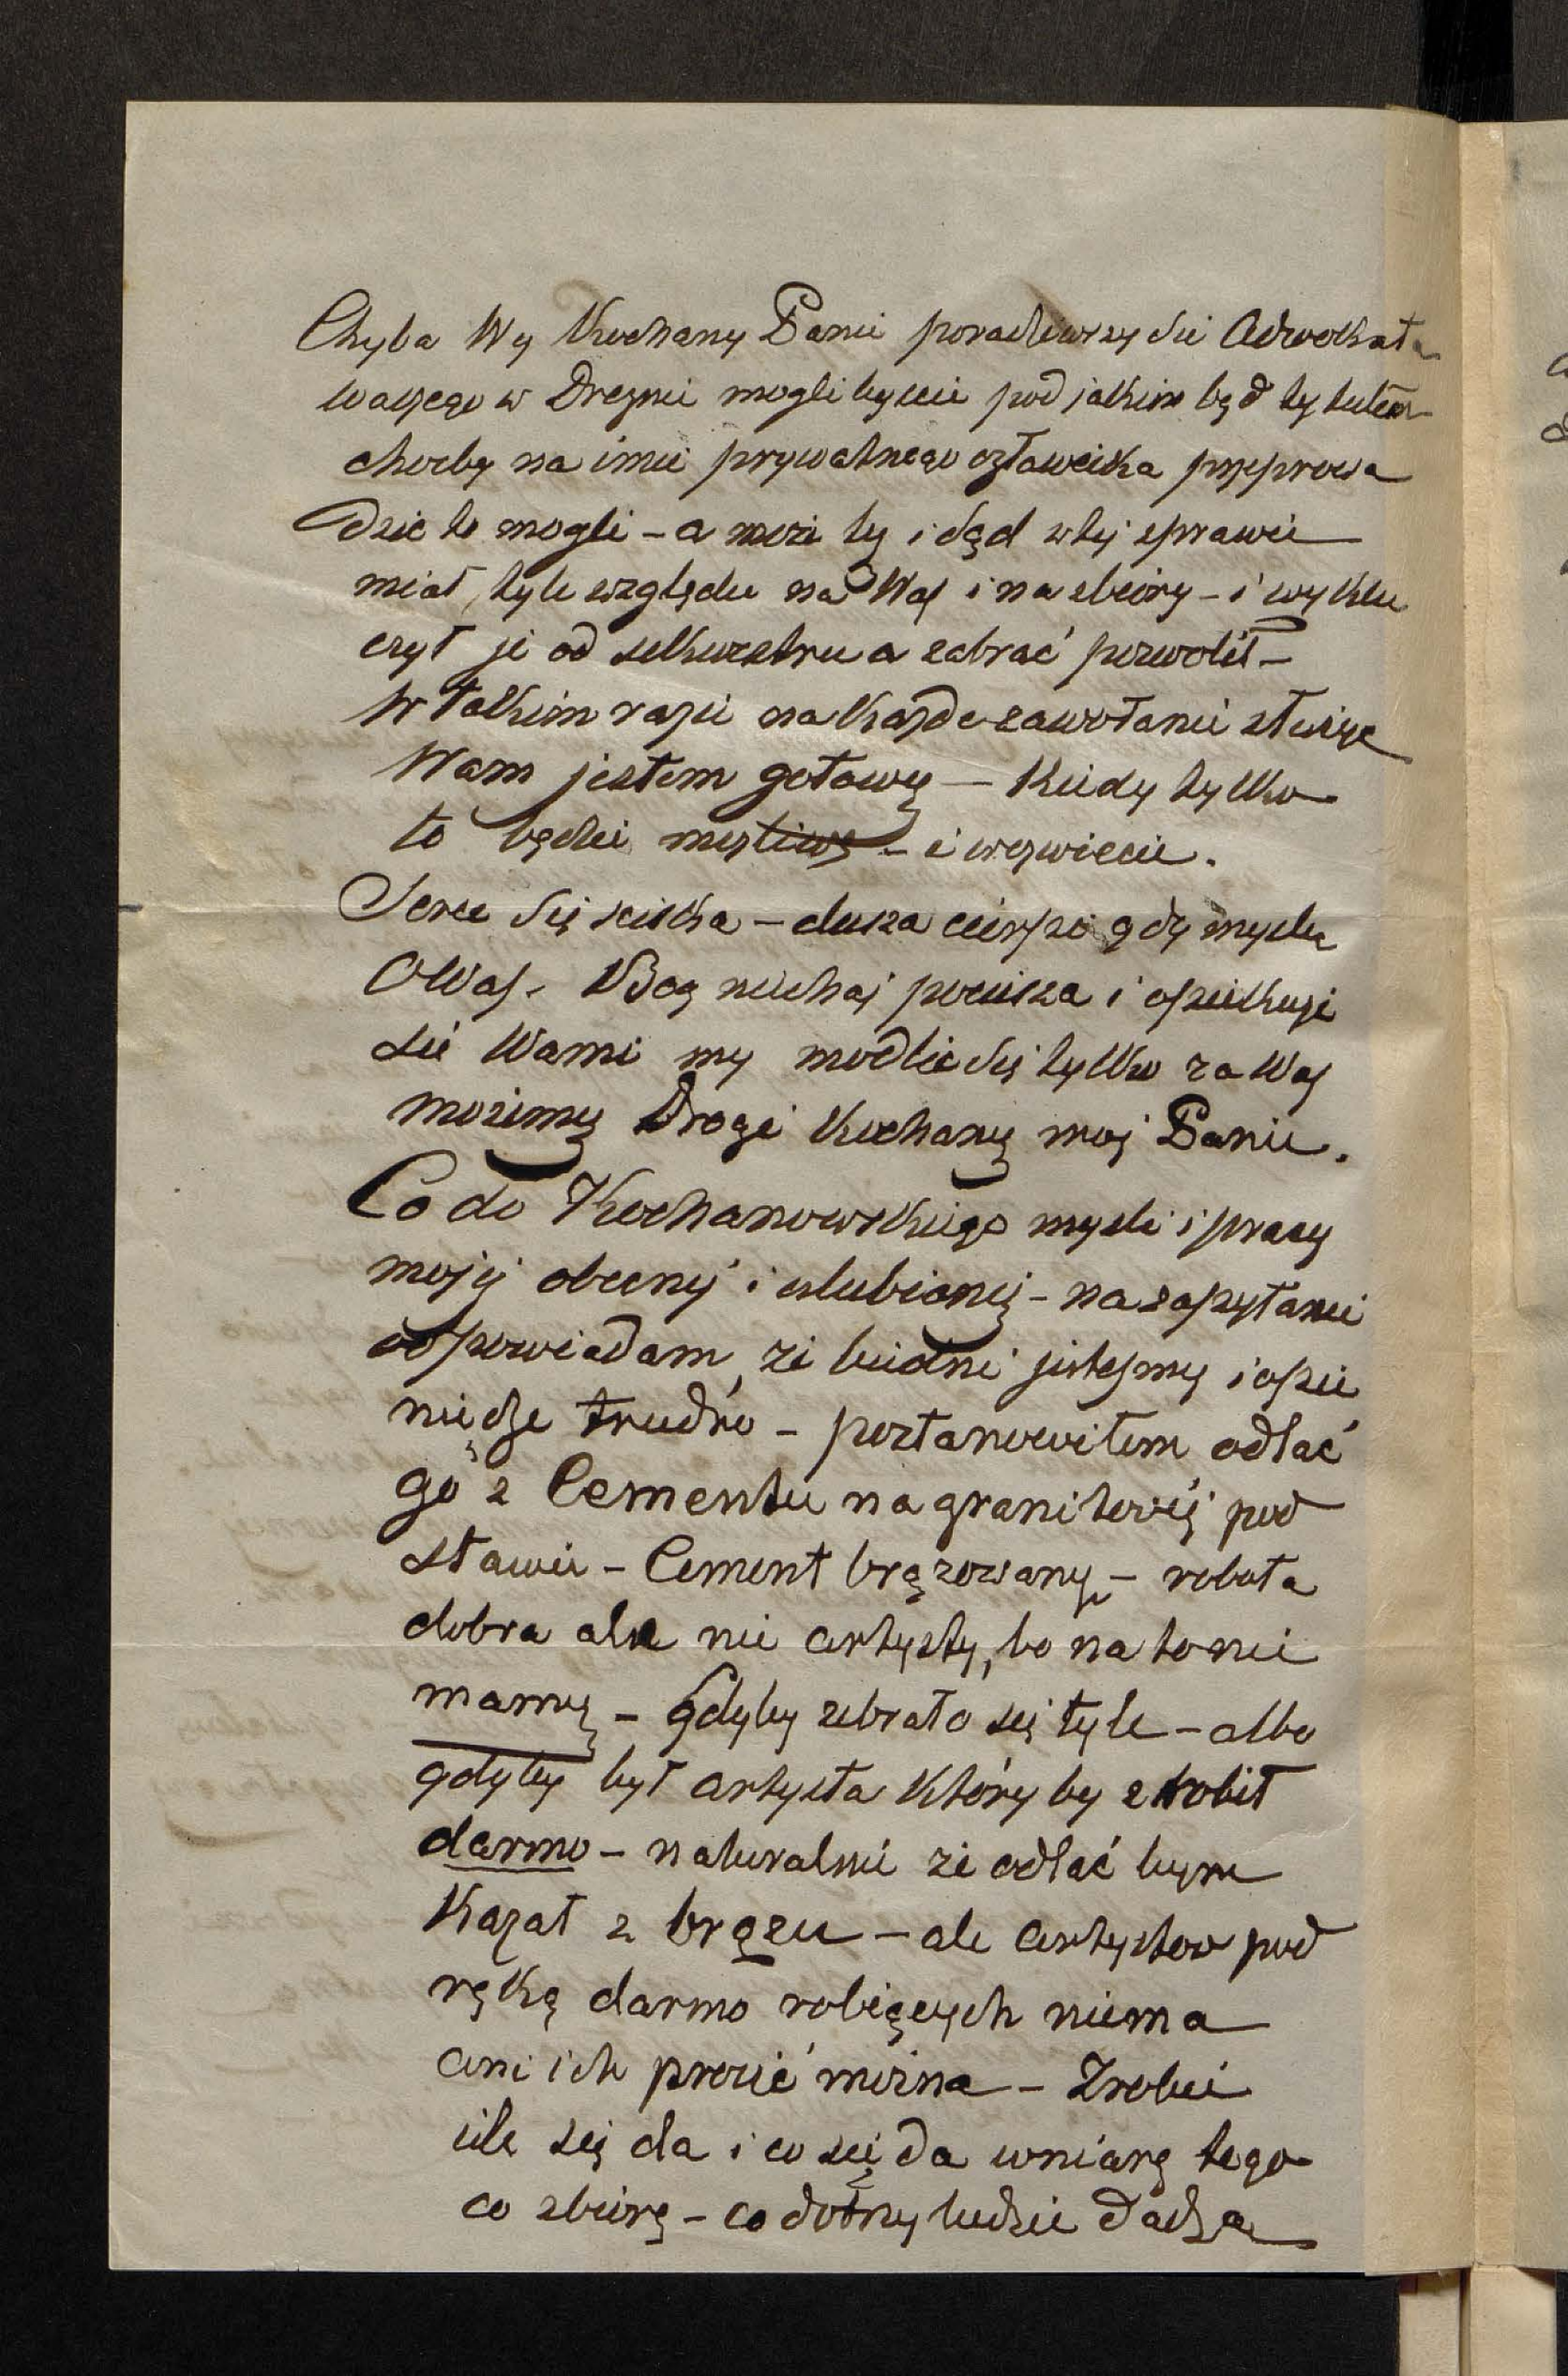 Chyba Wy Kochany Panie poradziwszy sie Adwokata
waszego w Dreznie mogli byscie pod jakim bąd tytułem
chocby na imie prywatnego człowieka przeprowa
dzic to mogli – a moze by i sąd w tej sprawie
miał tyle względu na Was i na zbiory – i wyklu
czył je od sekwestru a zabrać pozwolił –
W takim razie na kazde zawołanie służyc
Wam jestem gotowy – Kiedy tylko
to będzie mozliwe – i wezwiecie.
Serce się sciska – dusza cierpi gdy mysle
o Was. Bog niechaj pociesza i opiekuje
sie Wami my modlic się tylko za Was
mozemy Drogi Kochany moj Panie.
Co do Kochanowskiego mysli i pracy
mojej obecnej i ulubionej – na zapytanie
odpowiadam, ze biedni jestesmy i o pie
niądze trudno – postanowiłem odlać
go z Cementu na granitowej pod
stawie – Cement brązowany – robota
dobra ale nie artysty, bo na to nie
mamy – Gdyby zebrało się tyle – albo
gdyby był artysta który by zrobił
darmo – naturalnie ze odlać bym
kazał z brązu – ale artystow pod
ręką darmo robiących niema
ani ich prosić mozna – Zrobie
ile się da i co się da w miarę tego
co zbiorę – co dobrzy ludzie dadzą